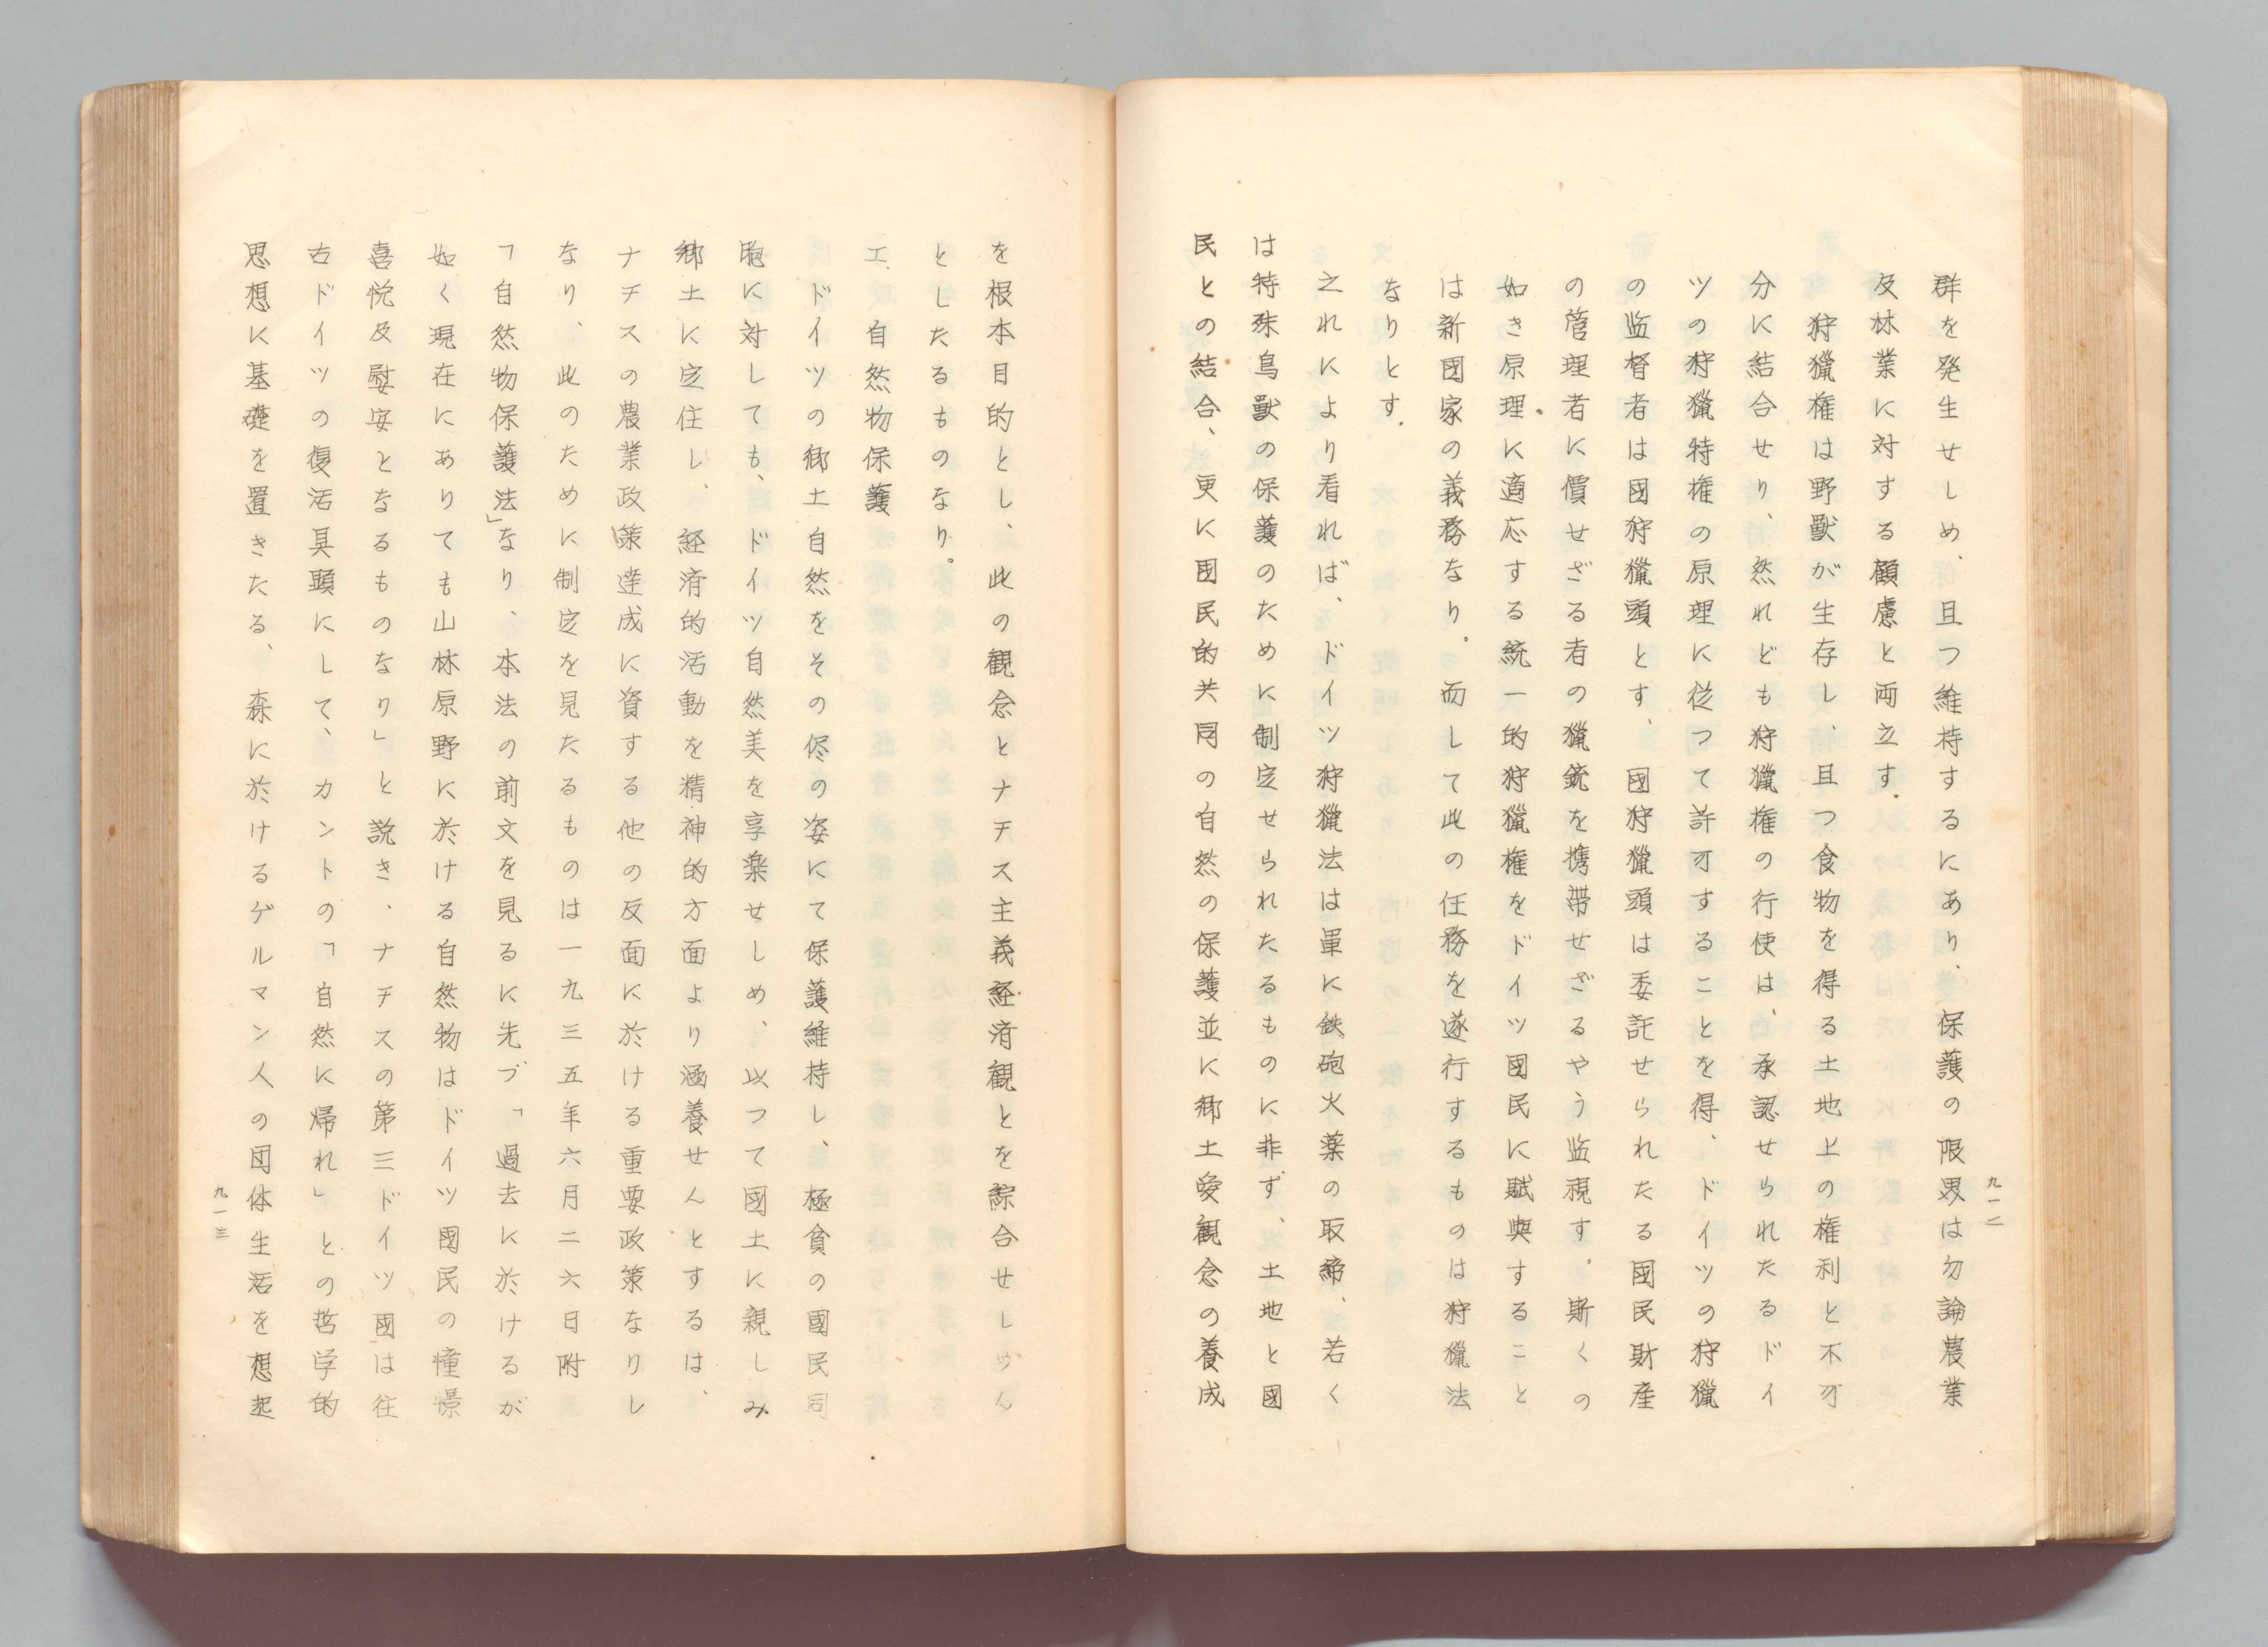 群を発生せしめ、且つ維持するにあり、保護の限界は勿論農業
及林業に対する顧慮と両立す.
狩獵権は野獣が生存し、且つ食物を得る土地上の権利と不可
分に結合せり、然れども狩獵権の行使は、承認せられたるドイ
ツの狩獵特権の原理に従つて許可することを得、ドイツの狩獵
の監督者は國狩獵頭とす、國狩獵頭は委託せられたる國民財産
の管理者に價せざる者の獵銃を携帯せざるやう監視す.斯くの
如き原理に適応する統一的狩獵権をドイツ國民に賦與すること
は新國家の義務なり.而して此の任務を遂行するものは狩獵法
なりとす.
之れにより看れば、ドイツ狩獵法は單に鉄砲火薬の取締、若く
は特殊鳥獸の保護のために制定せられたるものに非ず、土地と國
民との結合、更に国民的共同の自然の保護並に郷土愛観念の養成
九一二
を根本目的とし、此の観念とナチス主義経済観とを綜合せしめん
としたるものなり。
エ、自然物保護
ドイツの郷土自然をその侭の姿にて保護維持し、極貧の國民同
胞に対しても、ドイツ自然美を享楽せしめ、以つて國土に親しみ
郷土に定住し、経済的活動を精神的方面より涵養せんとするは、
ナチスの農業政策達成に資する他の反面に於ける重要政策なりし
なり、此のために制定を見たるものは一九三五年六月二六日附
「自然物保護法」なり、本法の前文を見るに先づ「過去に於けるが
如く現在にありても山林原野に於ける自然物はドイツ國民の憧憬
喜悦及慰安となるものなり」と説き、ナチスの第三ドイツ國は往
古ドイツの復活具顕にして、カントの「自然に帰れ」との哲学的
思想に基礎を置きたる、森に於けるゲルマン人の団体生活を想起
九一三